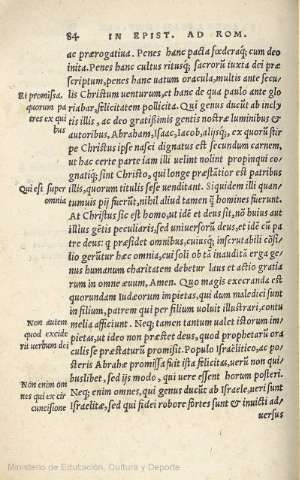 84 IN EPIST. AD ROM.
ac prærogatiua. Penes hanc pacta fœderaq́; cum deo
inita. Penes hanc cultus ritusq́; sacrorũ iuxta dei præ
scriptum, penes hanc uatum oracula, multis ante secu
Ei promissa. lis Christum uenturum, et hanc de qua paulo ante glo
quorum pa riabar, felicitatem pollicita. Qui genus ducũt ab incly
tres ex qui tis illis, ac deo gratissimis gentis nostræ luminibus &
bus autoribus, Abraham, Isaac, Iacob, alijsq́;, ex quorũ stir
pe Christus ipse nasci dignatus est secundum carnem,
ut hac certe parte iam illi uelint nolint propinqui co
gnatiq́; sint Christo, qui longe præstãtior est patribus
Qui est super illis, quorum titulis sese uenditant. Siquidem illi quan
omnia tumuis pij fuerũt, nihil aliud tamen q̃ homines fuerunt.
At Christus sic est homo, ut idẽ et deus sit, nõ huius aut
illius gẽtis peculiaris, sed uniuersorũ deus, et idẽ cũ pa
tre deus: q præsidet omnibus, cuiusq́; inscrutabili cõsi
lio gerũtur hæc omnia, cui soli ob tã inauditã erga ge=
nus humanum charitatem debetur laus et actio gratia
rum in omne æuum, Amen. Quo magis execranda est
quorundam Iudæorum impietas, qui dum maledici sunt
in filium, patrem qui per filium uoluit illustrari, contu
Non autem melia afficiunt. Neq́; tamen tantum ualet istorum im=
quod excide pietas, ut ideo non præstet deus, quod prophetarũ ora
rit uerbum dei culis se præstaturũ promisit. Populo Israëlitico, ac po=
steris Abrahæ promissa fuit ista felicitas, uerũ non qui
buslibet, sed ijs modo, qui uere essent horum posteri.
Non enim om Neq́; enim omnes, qui genus ducũt ab Israele, ueri sunt
nes qui ex cir Israelitæ, sed qui fidei robore fortes sunt & inuicti ad=
cuncisione uersus
Ministerio de Educación, Cultura y Deporte